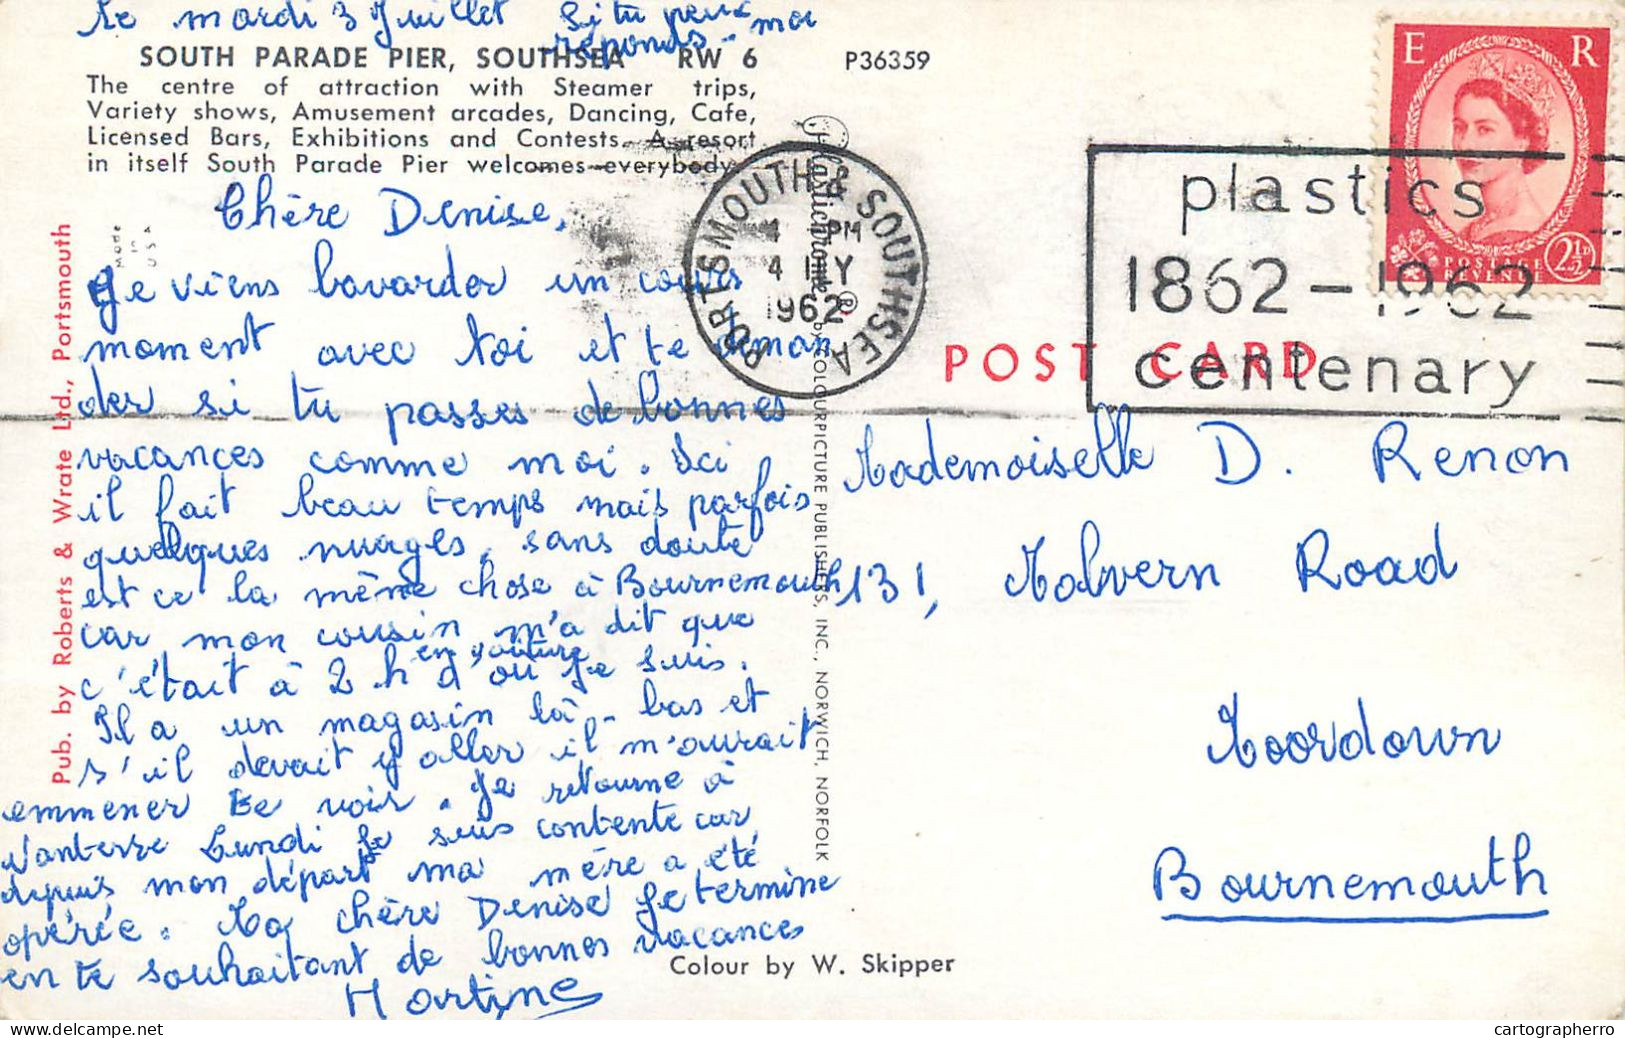 Le mardi 3 Juillet Si tu peux
réponds-moi
SOUTH PARADE PIER, SOUTHSEA RW 6
P36359
The centre of attraction with Steamer trips,
Variety shows, Amusement arcades, Dancing, Cafe,
Licensed Bars, Exhibitions and Contests. A resort
in itself South Parade Pier welcomes everybody.
Chère Denise,
Je viens bavarder un cours
moment avec toi et te deman
der si tu passes de bonnes
vacances comme moi. Ici
il fait beau temps mais parfois
quelques nuages, sans doute
est ce la même chose à Bournemouth
car mon cousin m'a dit que
c'était à 2 h en voiture d'où je suis.
Il a un magasin là-bas et
s'il devait y aller il m'aurait
emmener te voir. Je retourne à
Nanterre Lundi je suis contente car
depuis mon départ ma mère a été
opérée. Ma chère Denise je termine
en te souhaitant de bonnes vacances
Martine
Made in USA
Pub. by Roberts & Wrate Ltd., Portsmouth
Plastichrome ® by COLOURPICTURE PUBLISHERS, INC., NORWICH, NORFOLK
Colour by W. Skipper
PORTSMOUTH & SOUTHSEA
4 PM
4 JLY
1962
plastics
1862-1962
centenary
E R
POSTAGE
REVENUE
2½D
POST CARD
Mademoiselle D. Renon
131, Malvern Road
Moordown
Bournemouth
cartographerro
PREVIEW 1024x768 px. [DELCAMPE]